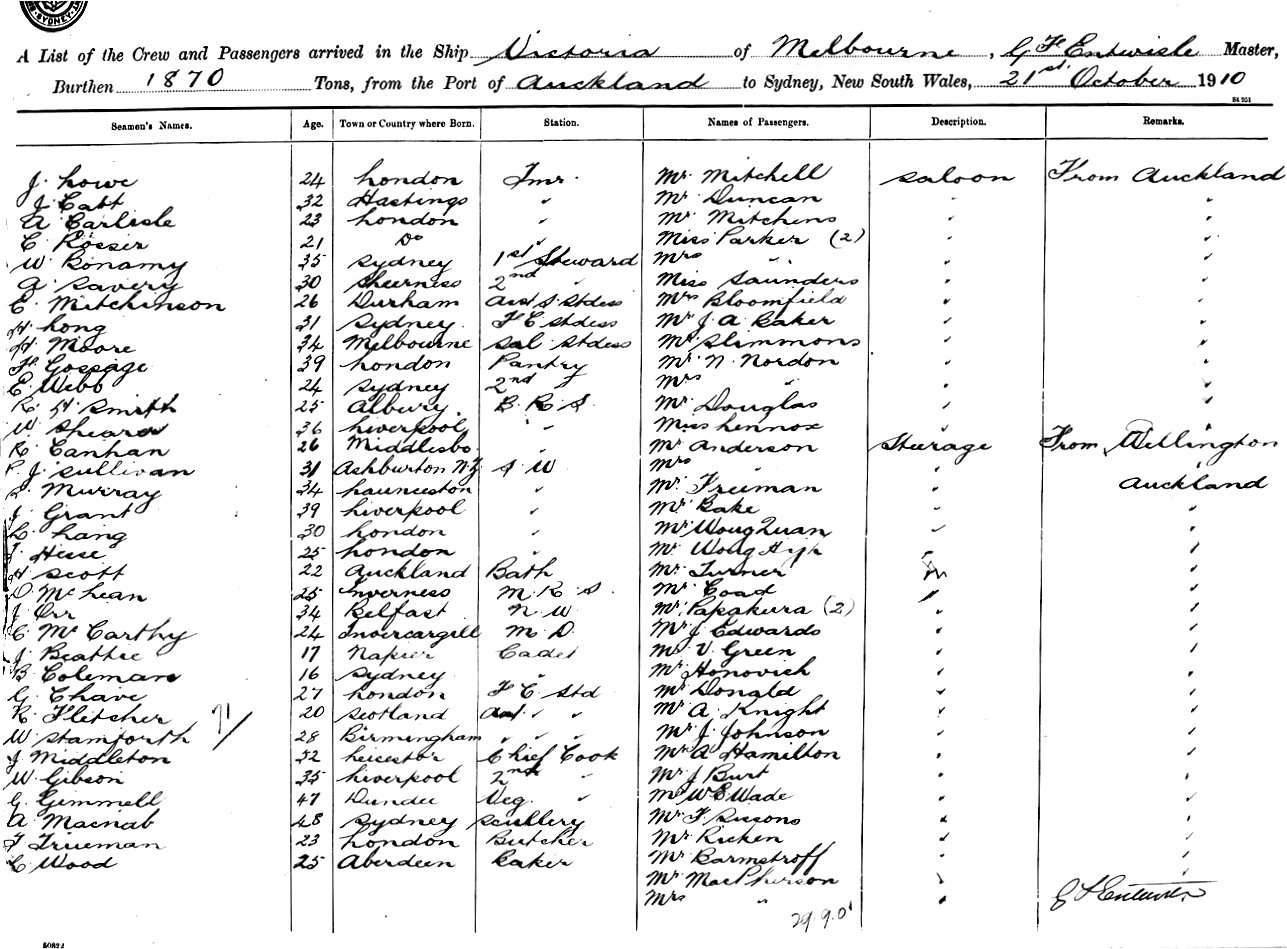 SYDNEY
A List of the Crew and Passengers arrived in the Ship Victoria of Melbourne, G F Entwisle Master,
Burthen 1870 Tons, from the Port of Auckland to Sydney, New South Wales, 21st October 1910
Seamen's Names. Age. Town or Country where Born. Station. Names of Passengers. Description. Remarks.
J. Lowe 24 London Tmr. Mr. Mitchell Saloon From Auckland
J Catt 32 Hastings " Mr Duncan " "
A Carlisle 23 London " Mr Mitchens " "
C Rosser 21 Do " Miss Parker (2) " "
W Bonamy 35 Sydney 1st Steward Mrs " " "
A Savery 30 Sheerness 2nd " Miss Saunders " "
E. Mitchinson 26 Durham S. Stdess Mrs Bloomfield " "
H Long 31 Sydney F C Stdess Mr J A Baker " "
H Moore 34 Melbourne Sal Stdess Mr Slimmons " "
F. Gossage 39 London Pantry Mr N. Nordon " "
E Webb 24 Sydney 2nd " Mrs " " "
R. H Smith 25 Albury. B. R S. Mr Douglas " "
W Shears 36 Liverpool " Miss Lennox " "
R Canhan 26 Middlesbo " Mr Anderson Steerage From Wellington
J. Sullivan 31 Ashburton NZ S W Mrs " "
Murray 34 Launceston " Mr Freeman " Auckland
J Grant 39 Liverpool " Mr Bake " "
L. Lang 30 London " Mr Woug Quan " "
J. Hesse 25 London " Mr Woug Hip " "
H Scott 22 Auckland Bath Mr Turner " "
D McLean 25 Inverness M. R S. Mr Coad " "
J Orr 34 Belfast N. W Mr Papakura (2) " "
C McCarthy 24 Invercargill M D. Mr J Edwards " "
J Beattie 17 Napier Cadet Mr V. Green " "
B Coleman 16 Sydney " Mr Honovich " "
G. Chave 27 London F C Std Mr Donald " "
R. Fletcher 20 Scotland " " Mr A. Knight " "
W Stamforth 28 Birmingham " " " Mr J. Johnson " "
J Middleton 32 Leicester Chief Cook Mr A Hamilton " "
W Gibson 35 Liverpool 2nd " Mr J Burt " "
G. Gemmell 47 Dundee Veg. " Mr W E Wade " "
A Macnab 48 Sydney Scullery Mr F. Sissons " "
F Trueman 23 London Butcher Mr Ricken " "
C Wood 25 Aberdeen Baker Mr Barmstroff " "
Mr MacPherson " "
Mrs " "
50824